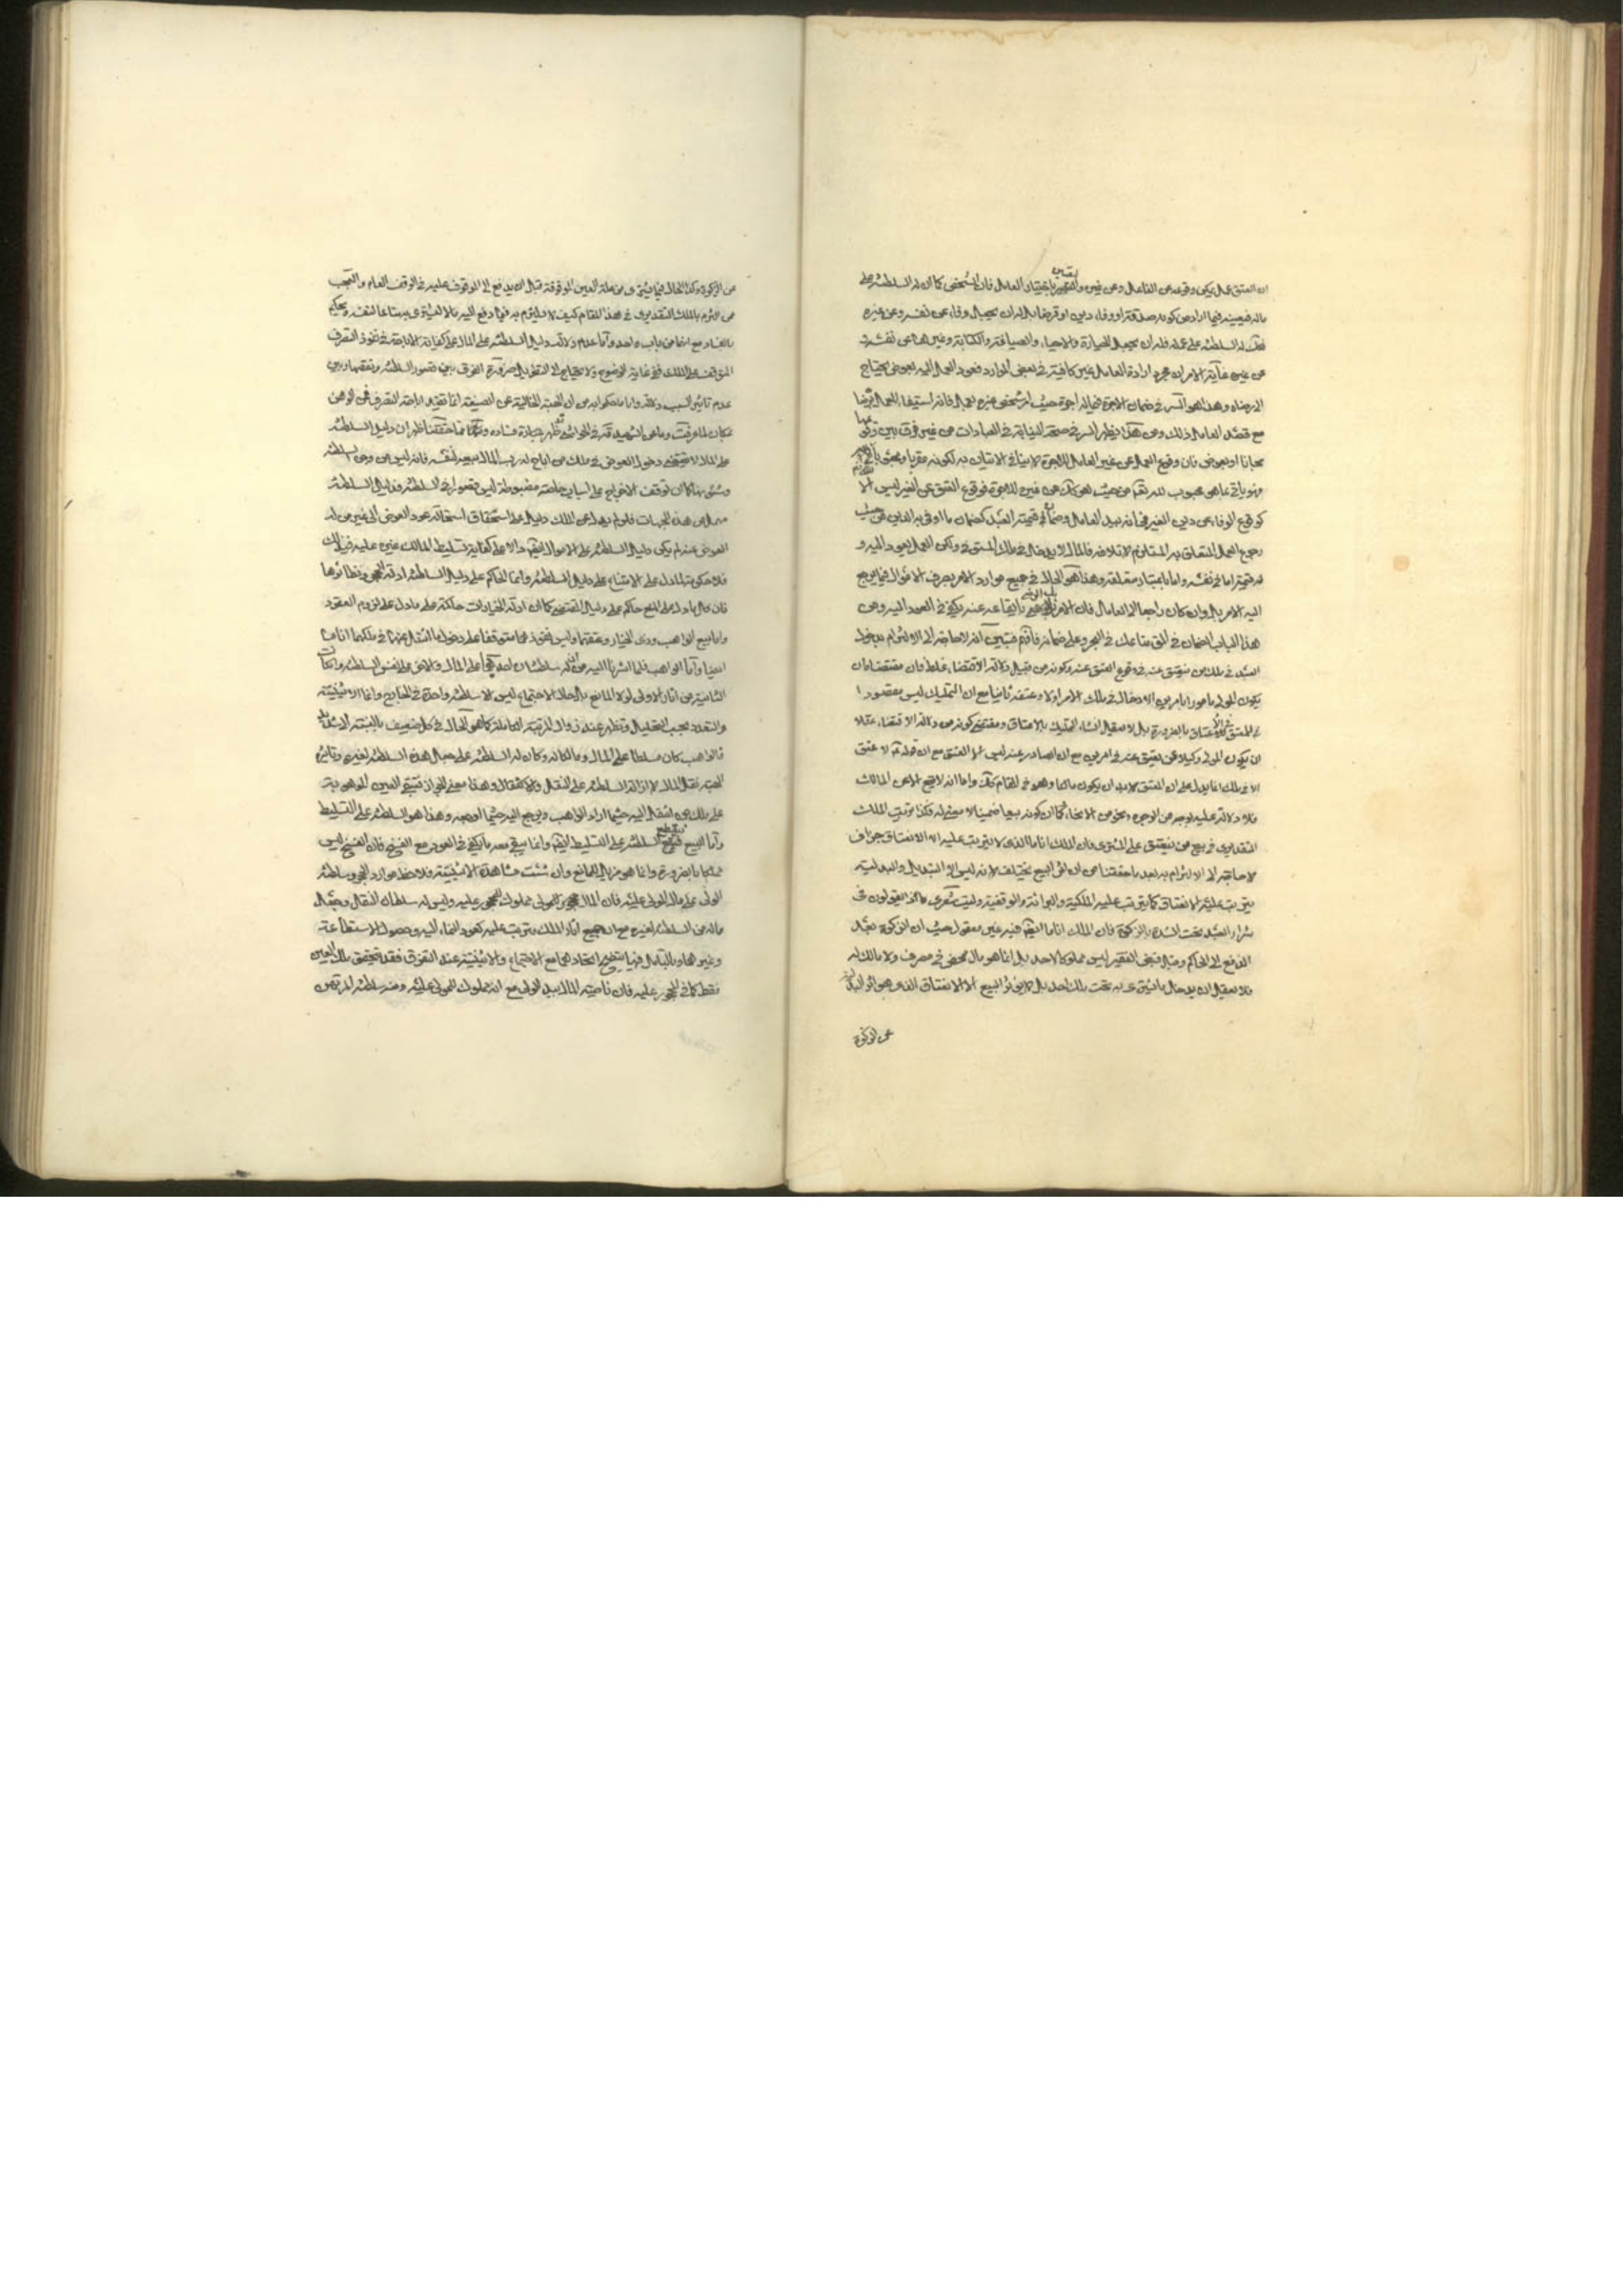 ان العتق عمل يمكن وقوعه عن الفاعل وعن غيره والتعيين باختيار العامل فان الشخص كما ان له السلطنة على
ماله فيعينه فيما اراد من كونه صدقة او وفاء دين او قرضا بل له ان يجعل وفاء عن نفسه وعن غيره
فكك له السلطنة على عمله فله ان يجعل الصيارة والاحياء والصياغة والكتابة وغيرها عن نفسه
عن غيره غاية الامر ان مجرد ارادة العامل غير كافية في بعض الموارد فعود العمل اليه بعوض يحتاج
الى رضاه وهذا هو السر في ضمان الاجرة فيما له اجرة حيث امر شخص غيره بعمل فانه استيفاء للعمل
مع قصد العامل ذلك ومن هنا يظهر السر في صحة النيابة في العبادات من غير فرق بين
مجانا او بعوض فان وقوع العمل عن غير العامل للاجرة لا ينافي الاتيان به لكونه مقربا
فهو ياتي بما هو محبوب لله تعالى من حيث هو كك عن غيره للاجرة فوقوع العتق عن الغير ليس الا
كوقوع الوفاء عن دين الغير في انه بيد العامل وضمان قيمة العبد كضمان ما اوفى به الدين من حيث
رجوع العمل المتعلق به المستلزم لاتلافه فالمال لا يدخل في ملك المعتق ولكن العمل يعود اليه و
له قيمة اما في نفسه واما باعتبار متعلقه وهذا هو الحال في جميع موارد الامر بصرف الاموال فيما يرجع
اليه الامر بل وان كان راجعا الى العامل فان الامر بايقاعه عنه يكفي في العود اليه ومن
هذا الباب الضمان في الق متاعك في البحر وعلى ضمانه فافهم فتبين انه لا حاجة الى الالتزام بدخول
العبد في ملك من يعتق عنه في وقوع العتق عنه وكونه من قبيل دلالة الاقتضاء غلط فان مقتضاه ان
يكون المولى مامورا بامرين الادخال في ملك الامر اولا وعتقه ثانيا مع ان التمليك ليس بمقصود
في العتق بالضرورة بل لا يعقل انشاء التمليك بالاعتاق ومقتضى كونه من دلالة الاقتضاء عقلا
ان يكون المولى وكيلا عن يعتق عنه في امرين مع ان الصادر عنه ليس الا العتق مع ان قوله لا عتق
الا في ملك انما يدل على ان المعتق لا بد ان يكون مالكا وهو في المقام كك واما انه لا يقع الا عن المالك
فلا دلالة عليه بوجه من الوجوه ونحو من الانحاء كما ان كونه بيعا ضمنيا لا معنى له وكذا ترتب الملك
التقديري في بيع من ينعتق على المشتري فان الملك انا ما الذي لا يترتب عليه الا الانعتاق جزاف
لا حاجة الى الالتزام به بعد ما حققنا من ان اثر البيع يختلف لانه ليس الا التبديل والبدلية
يترتب عليه الانعتاق كما يترتب عليه الملكية والبرائة والوقفية وليت شعري ماذا يقولون في
شراء العبد تحت الشدة بالزكوة فان الملك انا ما ايضا فيه غير معقول حيث ان الزكوة قبل
الدفع الى الحاكم وقبل قبض الفقير ليس مملوكا لاحد بل انما هو مال محض في مصرف ولا مالك له
فلا يعقل ان يدخل ما اشترى به تحت ملك احد بل لا يؤثر البيع الا الانعتاق الذي هو اثر
عن الزكوة
عن الزكوة وكذا الحال فيما يشترى من غلة العين الموقوفة قبل ان يدفع الى الموقوف عليه في الوقف العام والعجب
من التزم بالملك التقديري في هذا المقام كيف لا يلتزم به فيما دفع اليه مالا ليشتري به متاعا لنفسه ويحكم
بالفساد مع انهما من باب واحد واما عدم دلالة دليل السلطنة على المال على كفاية الاباحة في نفوذ التصرف
المتوقف على الملك ففي غاية الوضوح ولا يحتاج الى التطويل ضرورة الفرق بين قصور السلطنة ونقصها وبين
عدم تاثير السبب
مكان لما عرفت ظهر ان دليل السلطنة
على المال لا يقتضي دخول العوض في ملك من اباح له رب المال بيعه لنفسه فانه ليس من وجوه السلطنة
وشئونها كما ان توقف الاخراج على اسباب خاصة مضبوطة ليس قصورا في السلطنة ودليل السلطنة
العوض عنه لم يكن دليل السلطنة على الاموال ايضا دالا على كفاية تسليط المالك غيره عليه في ذلك
فلا حكومة لما دل على الامتناع على دليل السلطنة وانما الحاكم على دليل السلطنة ادلة الحجر ونظائرها
فان كل ما دل على المنع حاكم على دليل المقتضي كما ان ادلة الخيارات حاكمة على ما دل على لزوم العقود
واما بيع الواهب وذي الخيار وعتقهما وليس نفوذهما متوقفا على دخول ما انتقل عنهما في ملكهما انا ما
ايضا واما الواهب فلما اشرنا اليه من انه له سلطنتان احديهما على المال والاخرى على نفس السلطنة
الثانية من اثار الاولى لولا المانع بل حال الاجتماع ليس الا سلطنة واحدة في الخارج وانما الاثنينية
والتعدد بحسب التحليل وتظهر عند زوال المرتبة الكاملة كما هو الحال في كل ضعيف بالنسبة الى الشديد
فالواهب كان مسلطا على المال ومالكا له وكان له السلطنة على جعل هذه السلطنة لغيره وتاثير
الهبة نقل المال لا ازالة السلطنة على النقل والانتقال وهذا معنى الجواز فتبقى العين الموهوبة
على ملك من انتقل اليه حيثما اراد الواهب ويرجع اليه حيثما اوجبه وهذا هو السلطنة على التسليط
واما البيع فيقطع السلطنة على التسليط ايضا وانما يبقى معه ما يكفي في العود مع الفسخ فان الفسخ ليس
مملكا بالضرورة وانما هو مزيل للمانع وان شئت مشاهدة الاثنينية فلاحظ موارد الحجر وسلطنة
الولي على مال المولى عليه فان المال المحجور والمولى مملوك للمحجور عليه وليس له سلطان النقل وجعل
ماله من السلطنة لغيره مع ان جميع اثار الملك يترتب عليه كعود النماء اليه وحصول الاستطاعة
وغيرهما وبالتامل فيها يتضح اتحادهما مع الاجتماع والاثنينية عند التفرق فقد يتحقق ملك العين
فقط كما في المحجور عليه فان ناصية المال بيد الولي مع انه مملوك للمولى عليه ومنه سلطنة المرتهن